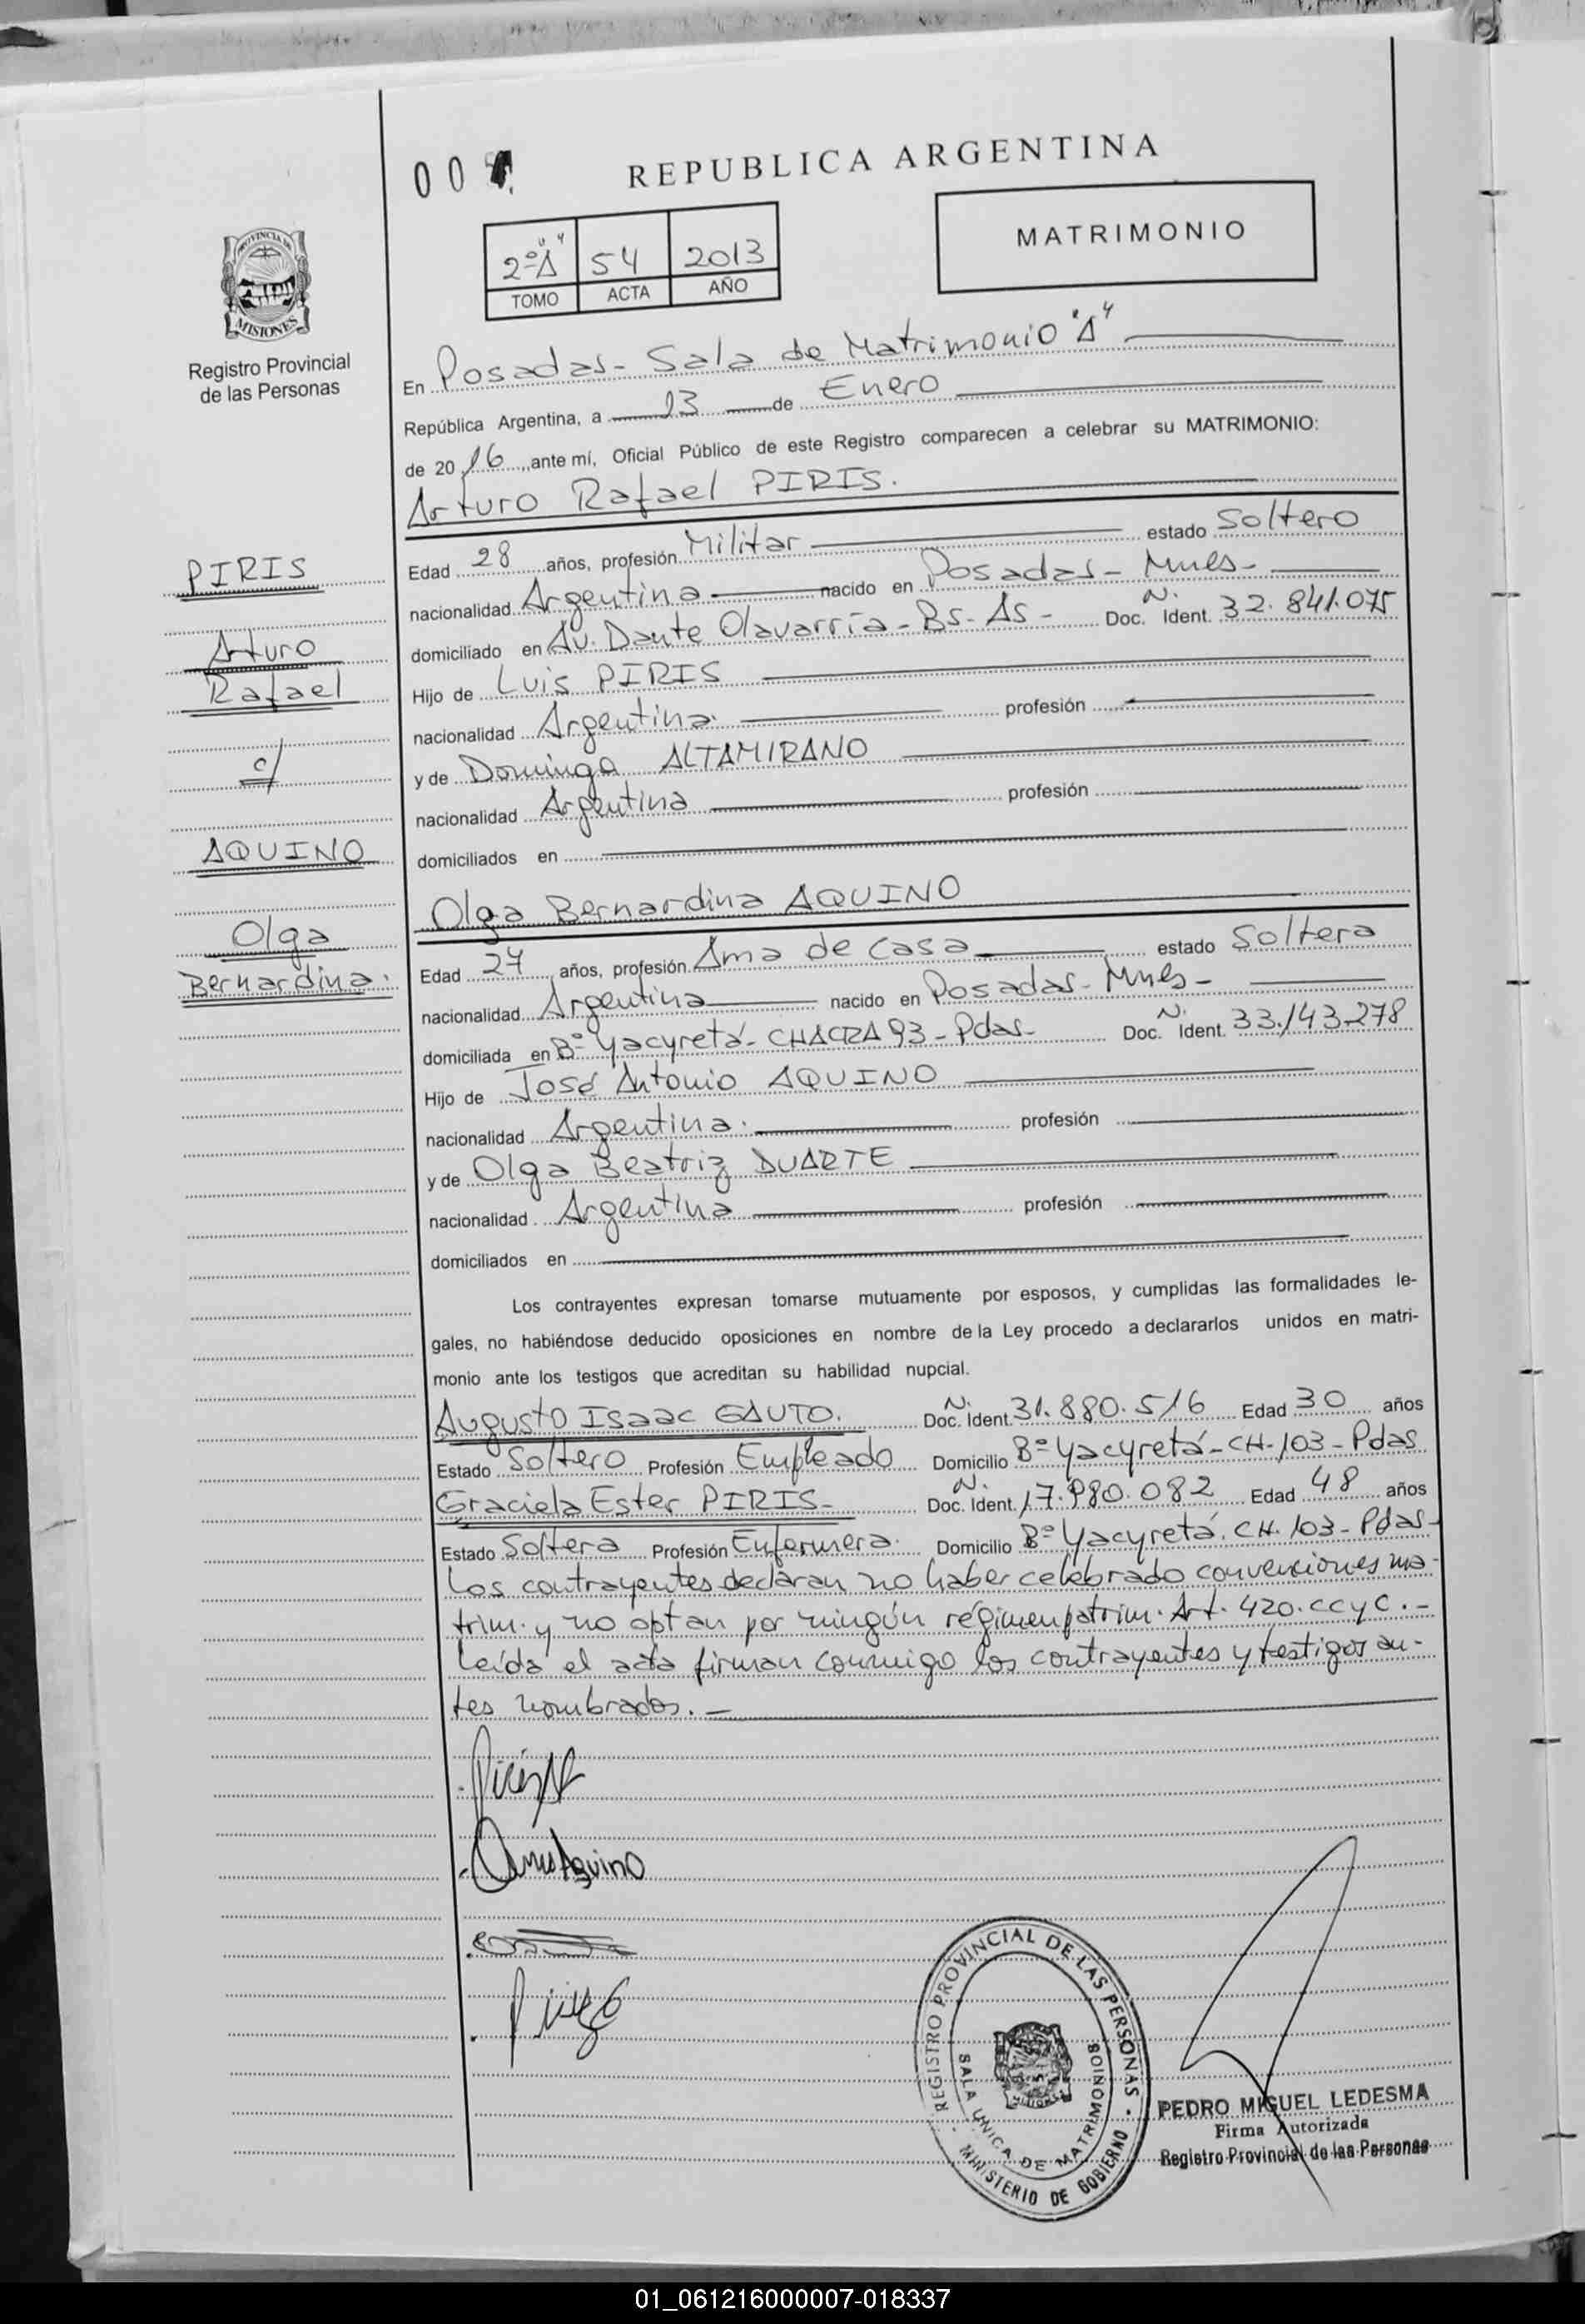 REPUBLICA ARGENTINA
00
2º "A" 54 2013
TOMO ACTA AÑO
MATRIMONIO
PROVINCIA DE
MISIONES
Registro Provincial
de las Personas
En Posadas - Sala de Matrimonio "A"
República Argentina, a 13 de Enero
de 2016, ante mí, Oficial Público de este Registro comparecen a celebrar su MATRIMONIO:
Arturo Rafael PIRIS.
Edad 28 años, profesión Militar estado Soltero
nacionalidad Argentina nacido en Posadas - Mnes -
domiciliado en Av. Dante Olavarría - Bs - As - Doc. Nº Ident. 32.841.075
Hijo de Luis PIRIS
nacionalidad Argentina. profesión
y de Dominga ALTAMIRANO
nacionalidad Argentina profesión
domiciliados en
Olga Bernardina AQUINO
Edad 27 años, profesión Ama de casa estado Soltera
nacionalidad Argentina nacido en Posadas - Mnes -
domiciliada en Bº Yacyretá - CHACRA 93 - Pdas - Doc. N. Ident. 33.143.278
Hijo de José Antonio AQUINO
nacionalidad Argentina. profesión
y de Olga Beatriz DUARTE
nacionalidad Argentina profesión
domiciliados en
PIRIS
Arturo
Rafael
c/
AQUINO
Olga
Bernardina.
Los contrayentes expresan tomarse mutuamente por esposos, y cumplidas las formalidades le-
gales, no habiéndose deducido oposiciones en nombre de la Ley procedo a declararlos unidos en matri-
monio ante los testigos que acreditan su habilidad nupcial.
Augusto Isaac GAUTO. Doc. N. Ident. 31.880.516 Edad 30 años
Estado Soltero Profesión Empleado Domicilio Bº Yacyretá - CH - 103 - Pdas
Graciela Ester PIRIS - Doc. N. Ident. 17.980.082 Edad 48 años
Estado Soltera Profesión Enfermera. Domicilio Bº Yacyretá. CH. 103 - Pdas -
Los contrayentes declaran no haber celebrado convenciones ma-
trim. y no optan por ningún régimen patrim. Art. 420. CCyC. -
Leída el acta firman conmigo los contrayentes y testigos an-
tes nombrados. -
Aquino
REGISTRO PROVINCIAL DE LAS PERSONAS
SALA UNICA DE MATRIMONIOS
MINISTERIO DE GOBIERNO
PEDRO MIGUEL LEDESMA
Firma Autorizada
Registro Provincial de las Personas
01_061216000007-018337